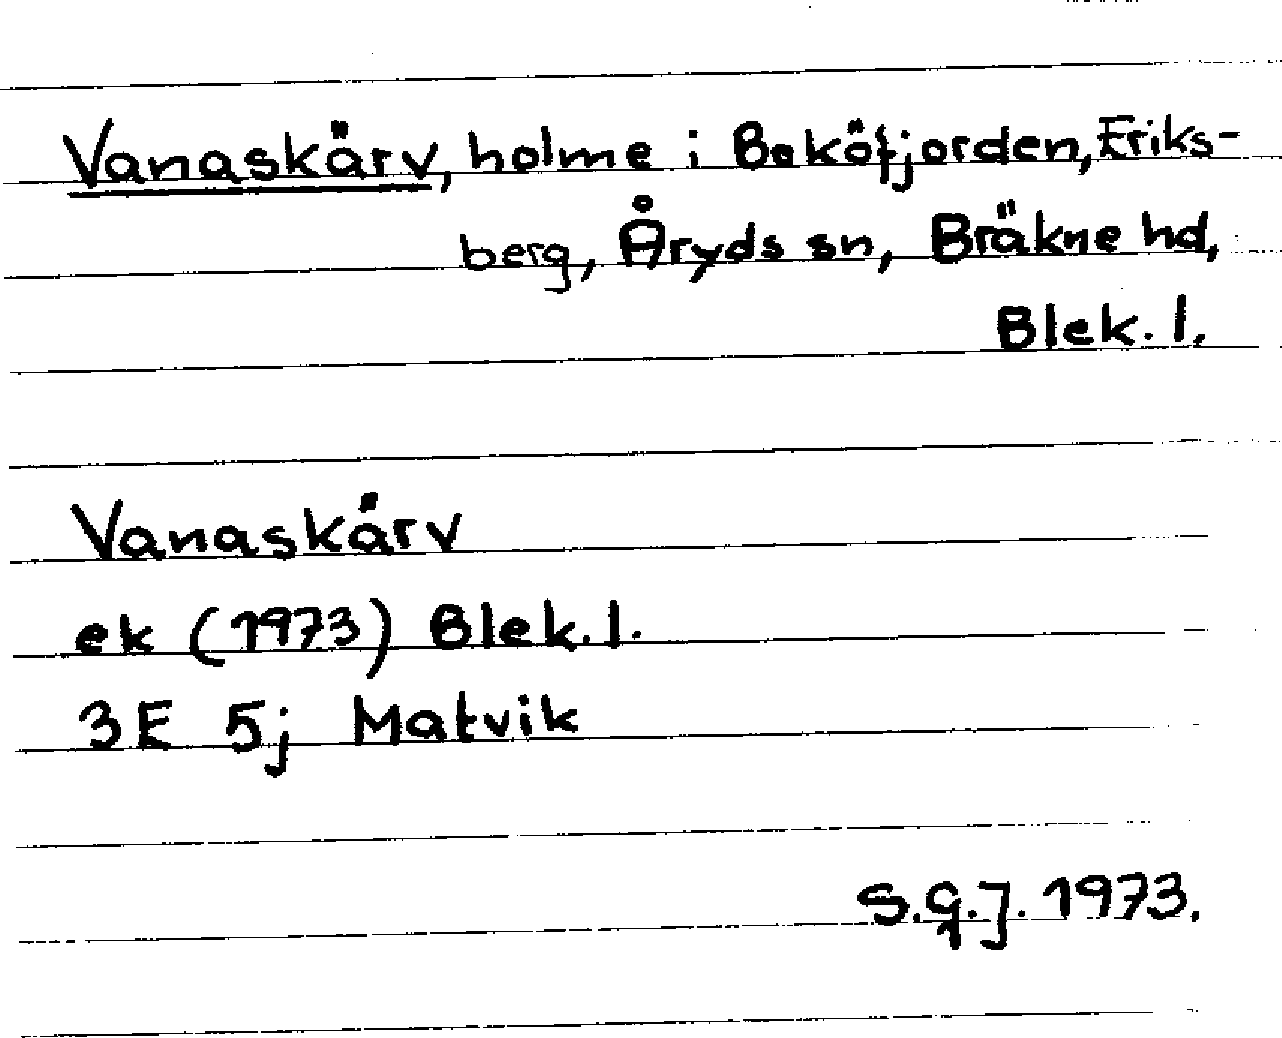 Vanaskärv, holme i Beköfjorden, Eriks-
berg, Åryds sn, Bräkne hd,
Blek. l.
Vanaskärv
ek (1973) Blek. l.
3E 5j Matvik
S.G.J. 1973.